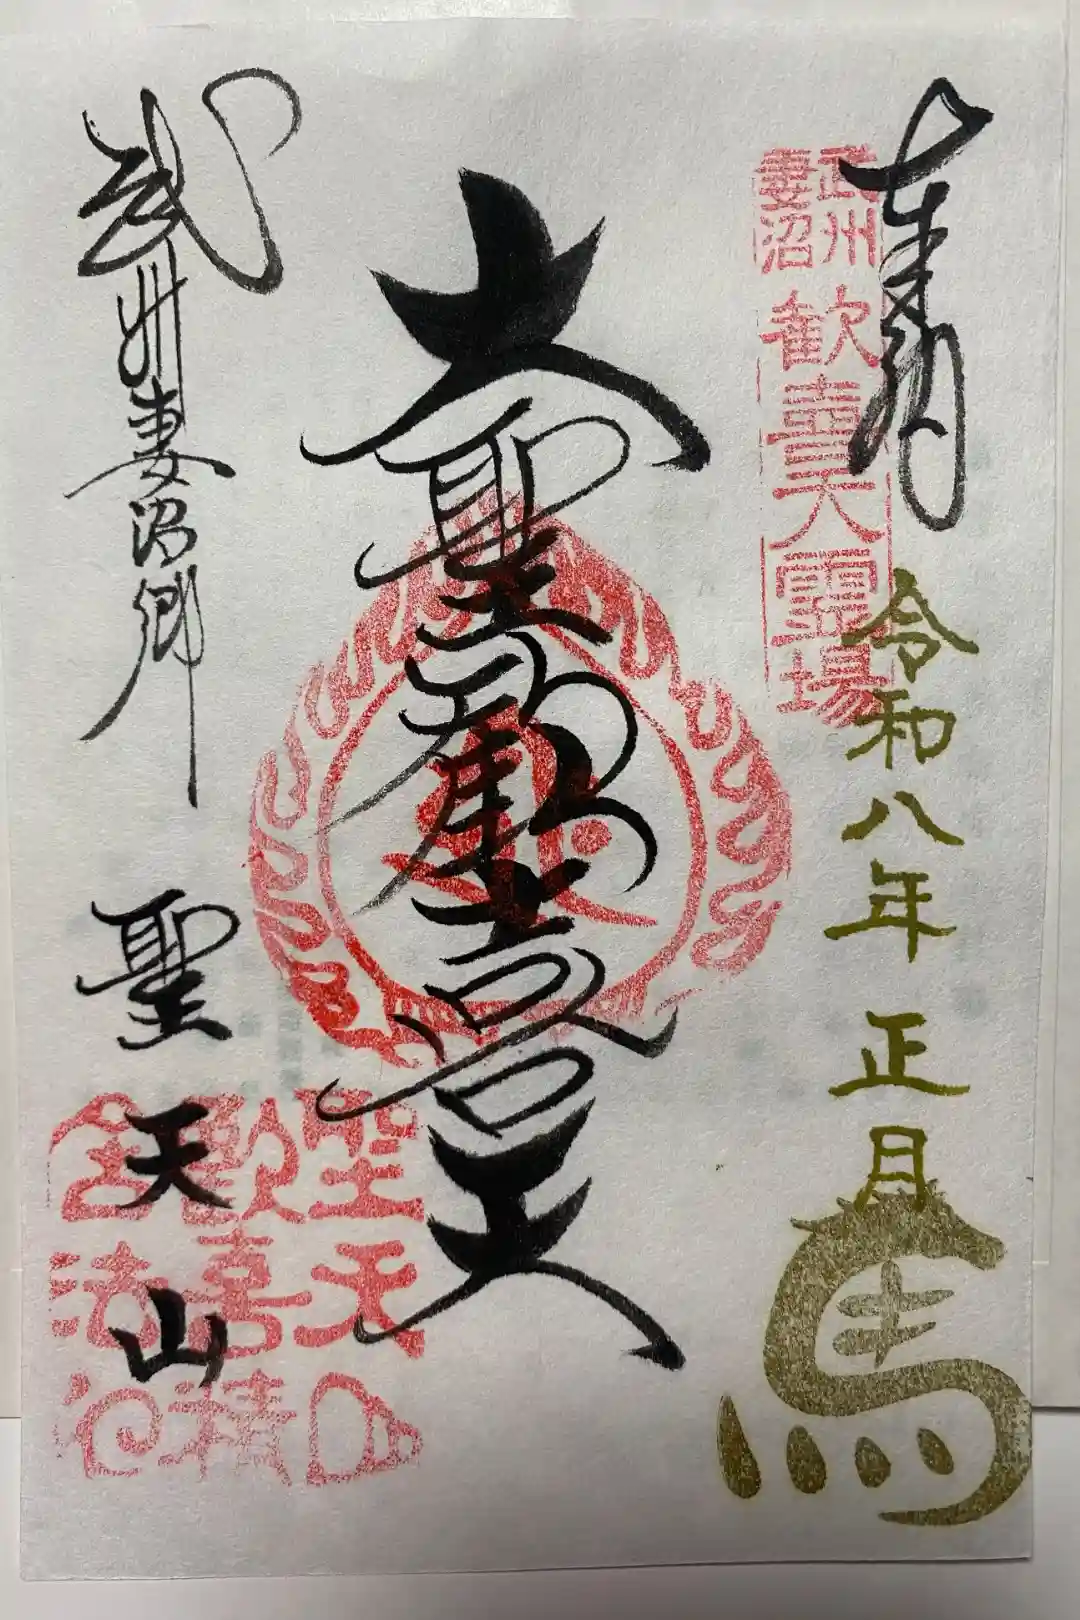 奉納
武州
妻沼
歓喜天霊場
令和八年 正月
馬
大聖歓喜天
武州妻沼郷
聖天山
聖天山
歓喜